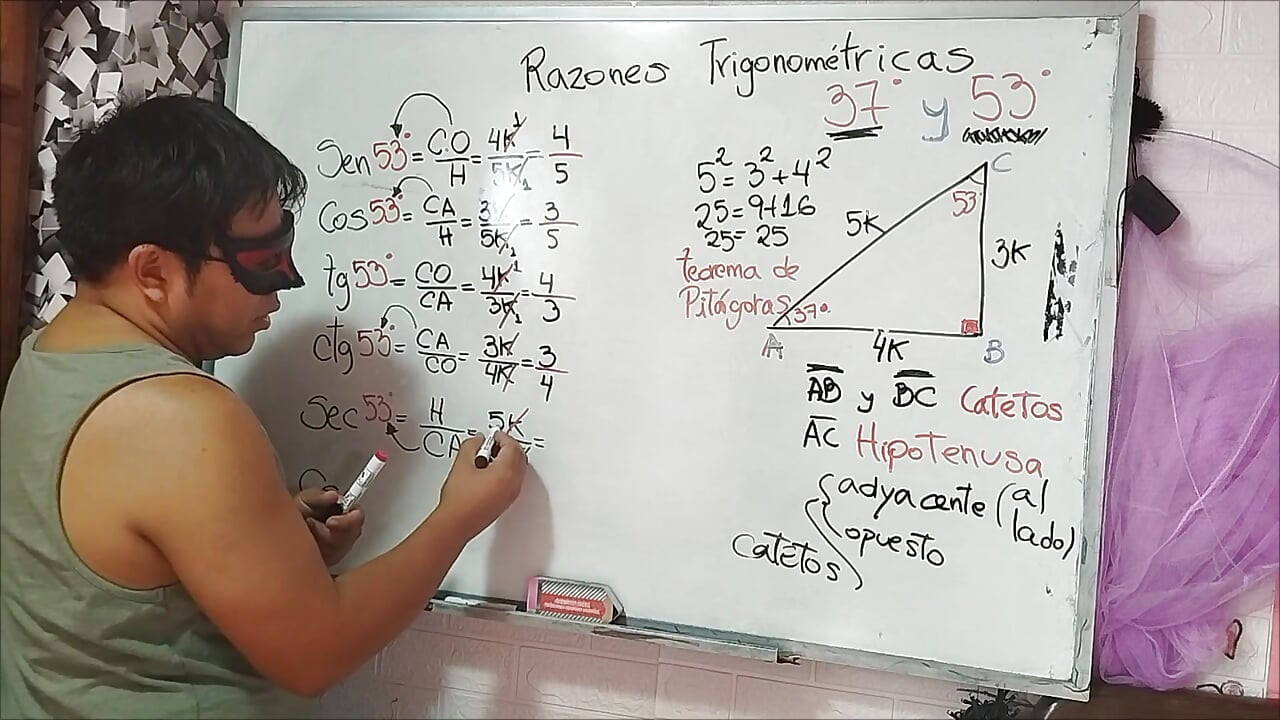 Razones Trigonométricas
37° y 53°
Sen 53° = CO/H = 4K/5K = 4/5
Cos 53° = CA/H = 3K/5K = 3/5
tg 53° = CO/CA = 4K/3K = 4/3
ctg 53° = CA/CO = 3K/4K = 3/4
Sec 53° = H/CA = 5K
5² = 3² + 4²
25 = 9+16
25 = 25
teorema de
Pitágoras
C
53
5K
3K
37°
A
4K
B
AB y BC Catetos
AC Hipotenusa
Catetos
adyacente (al
lado)
opuesto